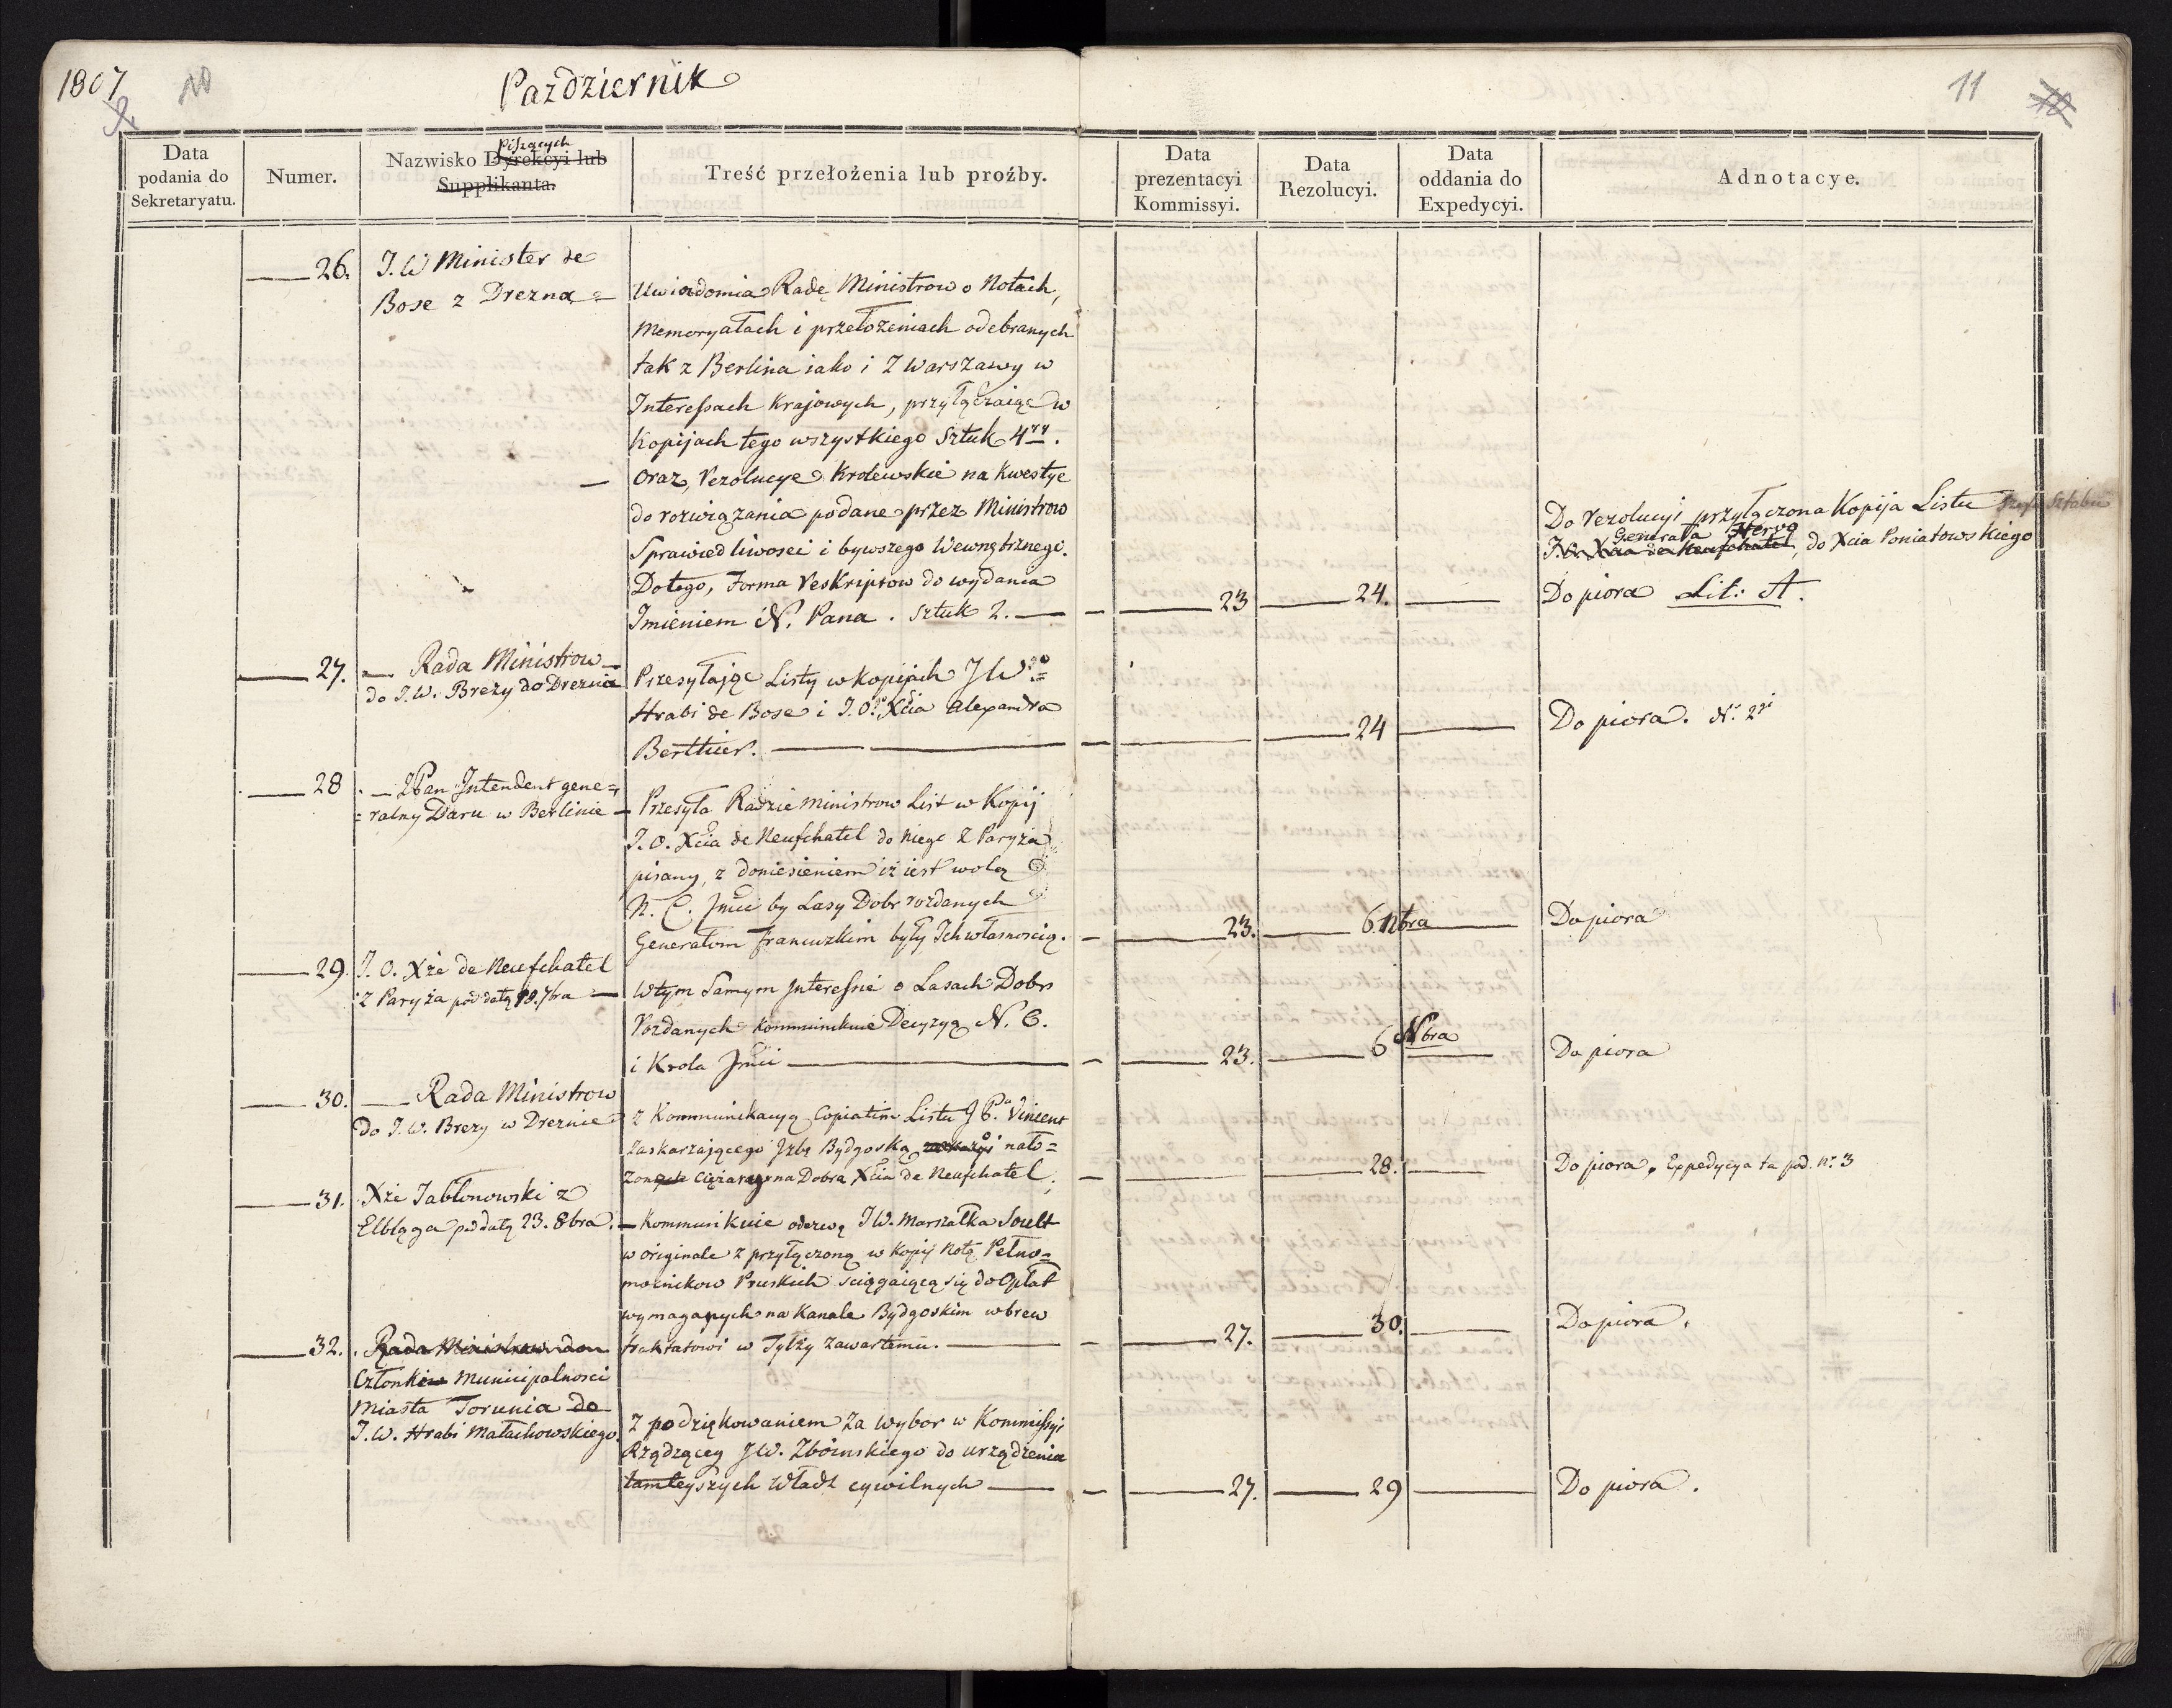 1807
10
Październik
11
Data podania do Sekretaryatu.
Numer.
Nazwisko Dyrekcyi lub Supplikanta.
Piszących
Treść przełożenia lub proźby.
Data prezentacyi Kommissyi.
Data Rezolucyi.
Data oddania do Expedycyi.
Adnotacye.
26.
J.W Minister de
Bose z Drezna =
Uwiadomia Radę Ministrow o Notach,
Memoryałach i przełożeniach odebranych
tak z Berlina iako i z Warszawy w
Interessach Krajowych, przyłączaiąc w
Kopijach tego wszystkiego Sztuk 4ry.
Oraz, Rezolucye Krolewskie na kwestye
do rozwiązania podane przez Ministrow
Sprawiedliwosci i bywszego Wewnętrznego.
Do tego, Forma Reskriptow do wydania
Imieniem N. Pana. Sztuk 2. —
23
24.
Do rezolucyi przyłączona Kopija Listu Szefa Sztabu
Generała Hervo
J.O. Xcia de Neufchatel, do Xcia Poniatowskiego
Do piora Lit: A.
27.
— Rada Ministrow
do J.W. Brezy do Drezna
Przesyłając Listy w kopijach JWgo
Hrabi de Bose i J.O. Xcia Alexandra
Berthier.
24
Do piora. N. 2gi
28
— JPan Intendent gene=
=ralny Daru w Berlinie —
Przesyła Radzie Ministrow List w Kopij
J.O. Xcia de Neufchatel do niego z Paryża
pisany, z doniesieniem iż iest wolą
N. C. Jmci by Lasy Dobr rozdanych
Generałom francuzkim były Ich własnoscią.
23.
6. Nbra
Do piora
29.
J.O. Xże de Neufchatel
z Paryża pod datą 18. 7bra —
W tym Samym Interessie o Lasach Dobr
rozdanych kommunikuie Decyzyą N. C.
i Krola Jmci
23.
6 Nbra
Do piora
30.
— Rada Ministrow
do J.W. Brezy w Dreznie
z Kommunikacyą Copiatim Listu J P. Vincent
zaskarżającego Izbę Bydgoską nało=
żone Ciężary na Dobra Xcia de Neufchatel.
28.
Do piora. Expedycya ta pod. N. 3
31.
Xże Jabłonowski z
Elbląga pod datą 23. 8bra.
— Kommunikuie odezwę JW. Marszałka Soult
w originale z przyłączoną w Kopij Notą Pełno=
mocnikow Pruskich sciągaiącą się do Opłat
wymaganych na Kanale Bydgoskim wbrew
traktatowi w Tylży zawartemu.
27.
30.
Do piora.
32.
Rada Ministrow don
Członkow Municipalnosci
Miasta Torunia do
J.W. Hrabi Małachowskiego.
z podziękowaniem za wybor w Kommissyi
Rządzącey JW. Zboinskiego do urządzenia
tamteyszych Władz cywilnych
27.
29
Do piora.